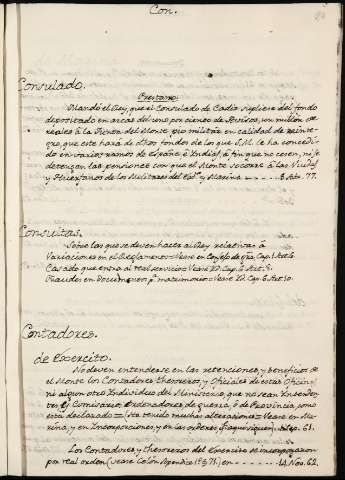 Con.
Consulado.
Prestamo.
Mandó el Rey, que el Consulado de Cadiz supliese del fondo
depositado en arcas del uno por ciento de Avisos, un millon de
reales á la Thesor.a del Monte pio militar en calidad de reinte-
gro, que este hará de otros fondos de los que S.M. le ha concedi-
do en varios ramos de España é Indias, á fin que no cesen, ni se
detengan las pensiones con que el Monte socorre á las Viudas
y Huerfanos de los Militares del Ex.to y Marina 77.
Consultas.
Sobre las que se deven hacer al Rey relativas á
Variaciones en el Reglamento = Vease en Consejo de Gra. Cap. 1. Art. 6
Casado que entra al real servicio = Vease Id. Cap. 6. Art. 8.
Fraudes en documentos p.a matrimonio = Vease Id. Cap. 8. Art. 10.
Contadores.
de Exercito.
No deven entenderse en las retenciones, y beneficios de
el Monte los Contadores, Thesoreros, y Oficiales de estas Oficinas,
ni algun otro Individuo del Ministerio, que no sean Intenden-
tes, Comisarios Ordenadores de guerra, ó de Provincia, como
está declarado = (ésta tenido muchas alteraciones = Vease en Ma-
rina, y en Incorporaciones, y en las ordenes 61.
Los Contadores y Thesoreros del Exercito se incorporaron
por real orden (vease Colón Apendice 1º 371) en 14. Nov. 62.